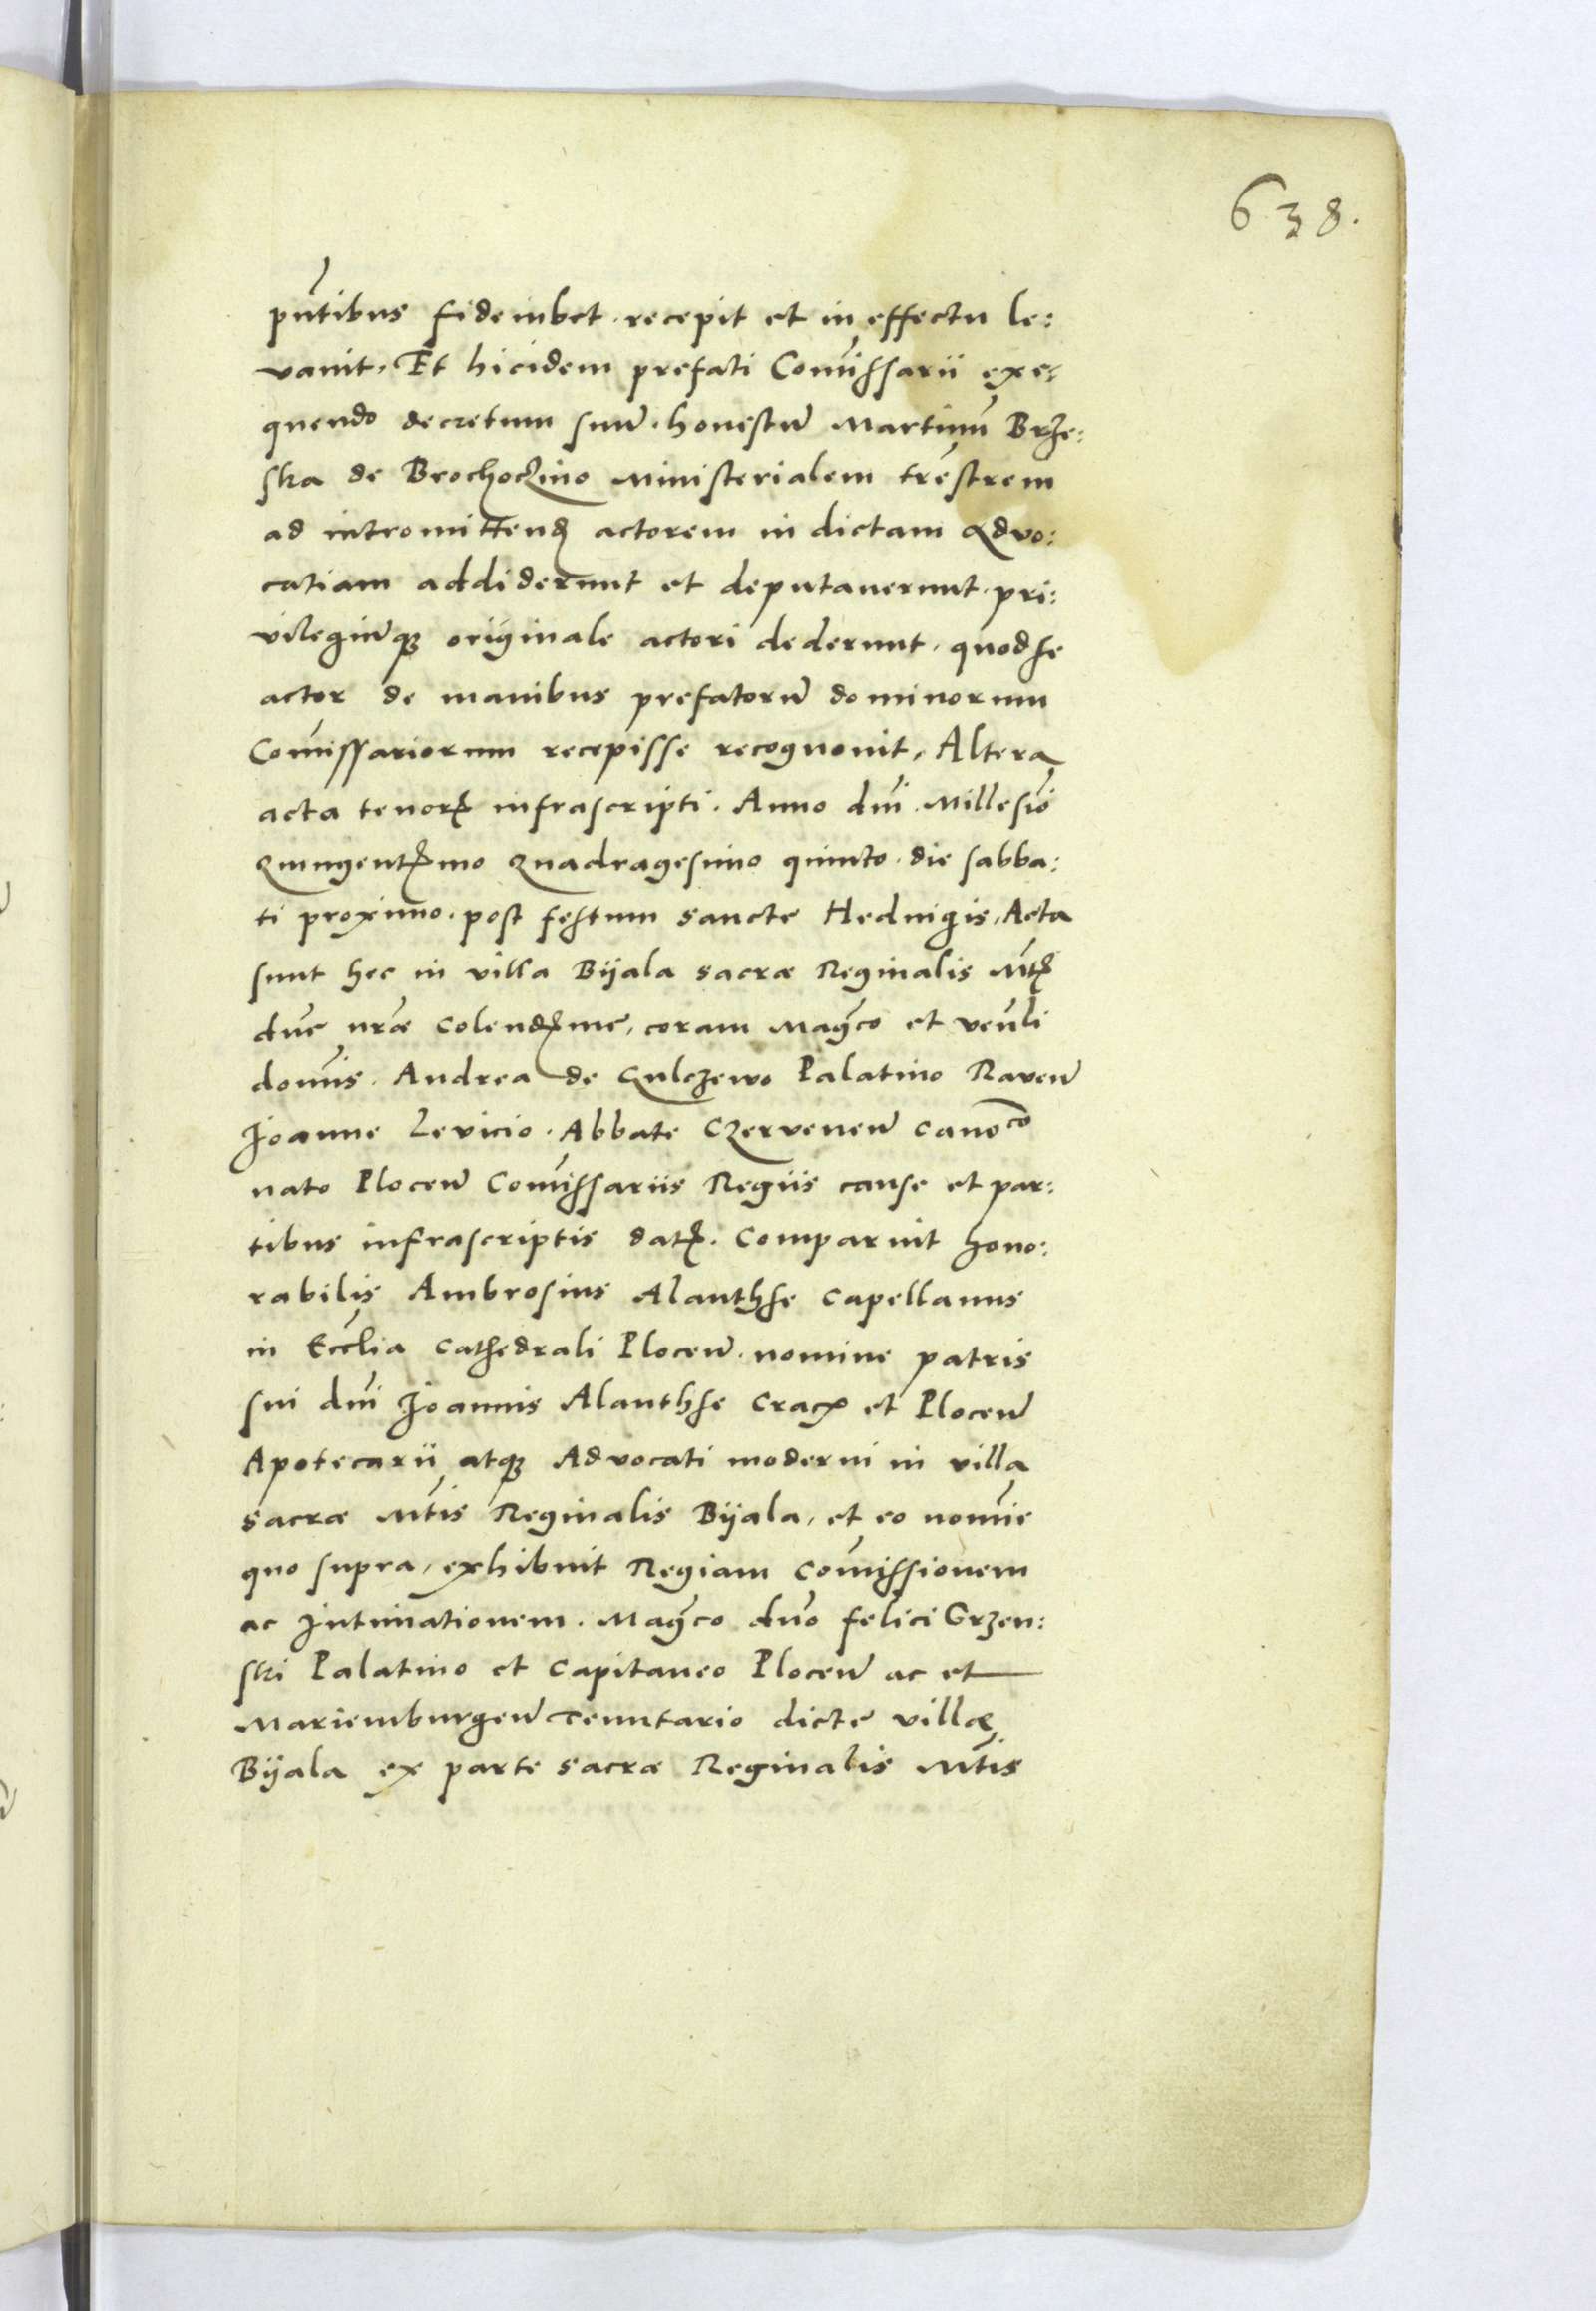 638.
pn̄tibus fideiubet. recepit et in effectu le:
vauit. Et hicidem prefati Com̄issarii exe:
quendo decretum suū. honestū Martinū Brze:
ska de Brochoczino Ministerialem trēstrem
ad intromittenđ actorem in dictam Advo:
catiam addiderunt et deputauerunt. pri:
vilegiūqꝫ originale actori dederunt. quod se
actor de manibus prefatorū dominorum
Com̄issariorum recepisse recognouit. Altera
acta tenorꝭ infrascripti. Anno dn̄i. Millesiō
Quingentꝭmo Quadragesimo quinto. die sabba:
ti proximo. post festum sancte Heduigis. Acta
sunt hec in villa Bijala sacræ Reginalis Mtꝭ
dn̄e nr̄æ Colendꝭme, coram Mag̃co et ven̄li
domīs. Andrea de Gulczewo Palatino Raveñ
Joanne Levicio. Abbate Czerveneñ Canoco
nato Ploceñ Com̄issariis Regiis cause et par:
tibus infrascriptis datꝭ. Comparuit hono:
rabilis Ambrosius Alanthse Capellanus
in Eccl̄ia Cathedrali Ploceñ. nomine patris
sui dn̄i Joannis Alanthse Cracꝭ et Ploceñ
Apotecarii atqꝫ Advocati moderni in villa
sacræ Mt̄is Reginalis Bijala, et eo nomīe
quo supra, exhibuit Regiam Com̄issionem
ac Intimationem. Mag̃co dn̄o felici Grzen:
ski Palatino et Capitaneo Ploceñ ac et
Mariemburgeñ Tenutario dicte villæ
Bijala ex parte sacræ Reginalis Mt̄is